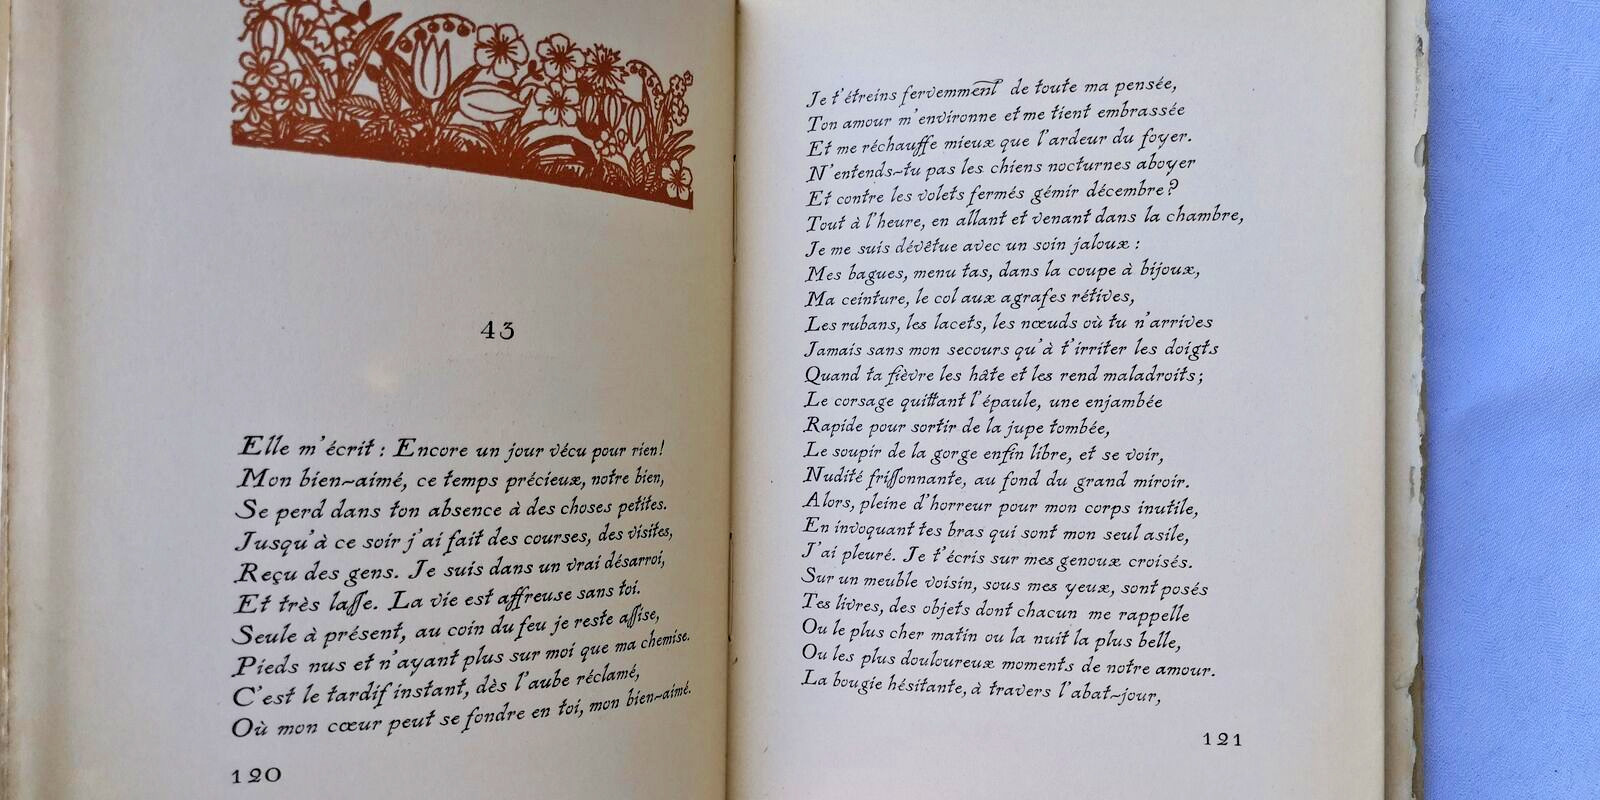 43
Elle m'écrit : Encore un jour vécu pour rien!
Mon bien-aimé, ce temps précieux, notre bien,
Se perd dans ton absence à des choses petites.
Jusqu'à ce soir j'ai fait des courses, des visites,
Reçu des gens. Je suis dans un vrai désarroi,
Et très lasse. La vie est affreuse sans toi.
Seule à présent, au coin du feu je reste assise,
Pieds nus et n'ayant plus sur moi que ma chemise.
C'est le tardif instant, dès l'aube réclamé,
Où mon cœur peut se fondre en toi, mon bien-aimé.
120
Je t'étreins fervemment de toute ma pensée,
Ton amour m'environne et me tient embrassée
Et me réchauffe mieux que l'ardeur du foyer.
N'entends-tu pas les chiens nocturnes aboyer
Et contre les volets fermés gémir décembre?
Tout à l'heure, en allant et venant dans la chambre,
Je me suis dévêtue avec un soin jaloux :
Mes bagues, menu tas, dans la coupe à bijoux,
Ma ceinture, le col aux agrafes rétives,
Les rubans, les lacets, les nœuds où tu n'arrives
Jamais sans mon secours qu'à t'irriter les doigts
Quand ta fièvre les hâte et les rend maladroits;
Le corsage quittant l'épaule, une enjambée
Rapide pour sortir de la jupe tombée,
Le soupir de la gorge enfin libre, et se voir,
Nudité frissonnante, au fond du grand miroir.
Alors, pleine d'horreur pour mon corps inutile,
En invoquant tes bras qui sont mon seul asile,
J'ai pleuré. Je t'écris sur mes genoux croisés.
Sur un meuble voisin, sous mes yeux, sont posés
Tes livres, des objets dont chacun me rappelle
Ou le plus cher matin ou la nuit la plus belle,
Ou les plus douloureux moments de notre amour.
La bougie hésitante, à travers l'abat-jour,
121